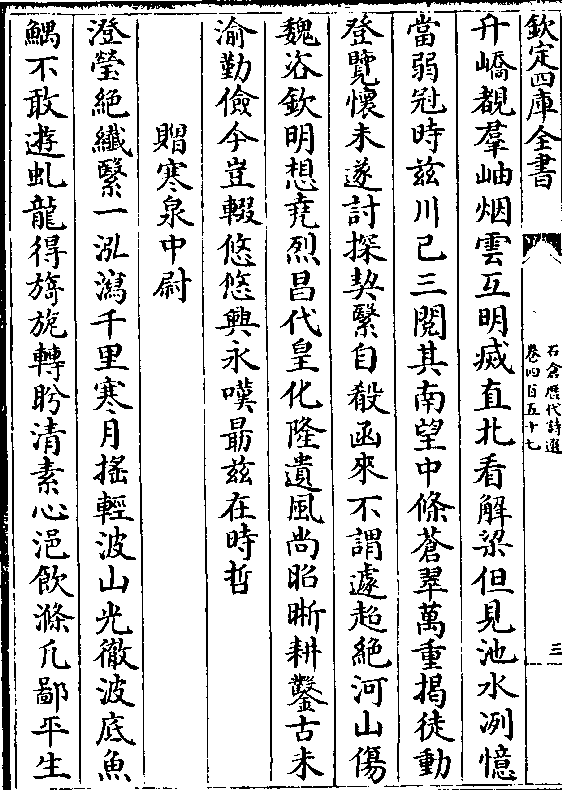 欽定四庫全書
石倉歷代詩選
卷四百五十七
三
升嶠覩羣岫烟雲互明㓕直北看解梁但見池水冽憶
當弱冠時兹川已三閱其南望中條蒼翠萬重揭徒動
登覽懐未遂討探契繄自殽函來不謂遽超絶河山傷
魏浴欽明想堯烈昌代皇化隆遺風尚昭晣耕鑿古未
渝勤儉今豈輟悠悠興永嘆朂兹在時哲
贈寒泉中尉
澄瑩絶纖繄一泓瀉千里寒月摇輕波山光徹波底魚
鰅不敢遊虬龍得旖旎轉盻清素心浥飲滌凡鄙平生